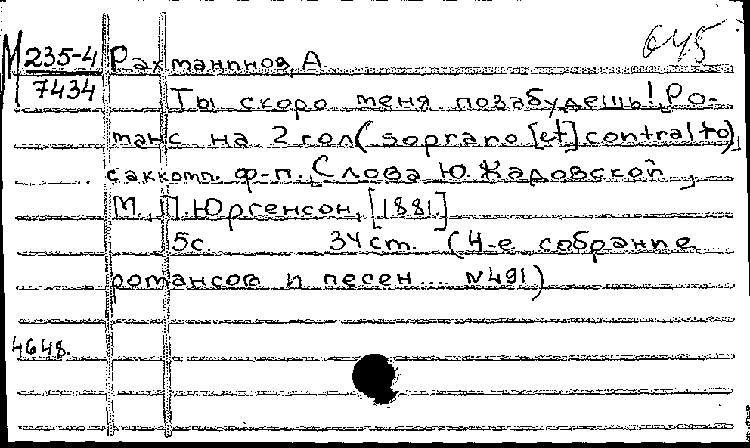 645
М 235-4 Рахманинов, А.
7434
Ты скоро меня позабудешь! Ро-
манс на 2 гол (soprano [et] contralto)
с аккомп. ф-п. Слова Ю. Жадовской,
М., П. Юргенсон, [1881.]
5с. 34 ст. (4-е собрание
романсов и песен... №491)
4648.